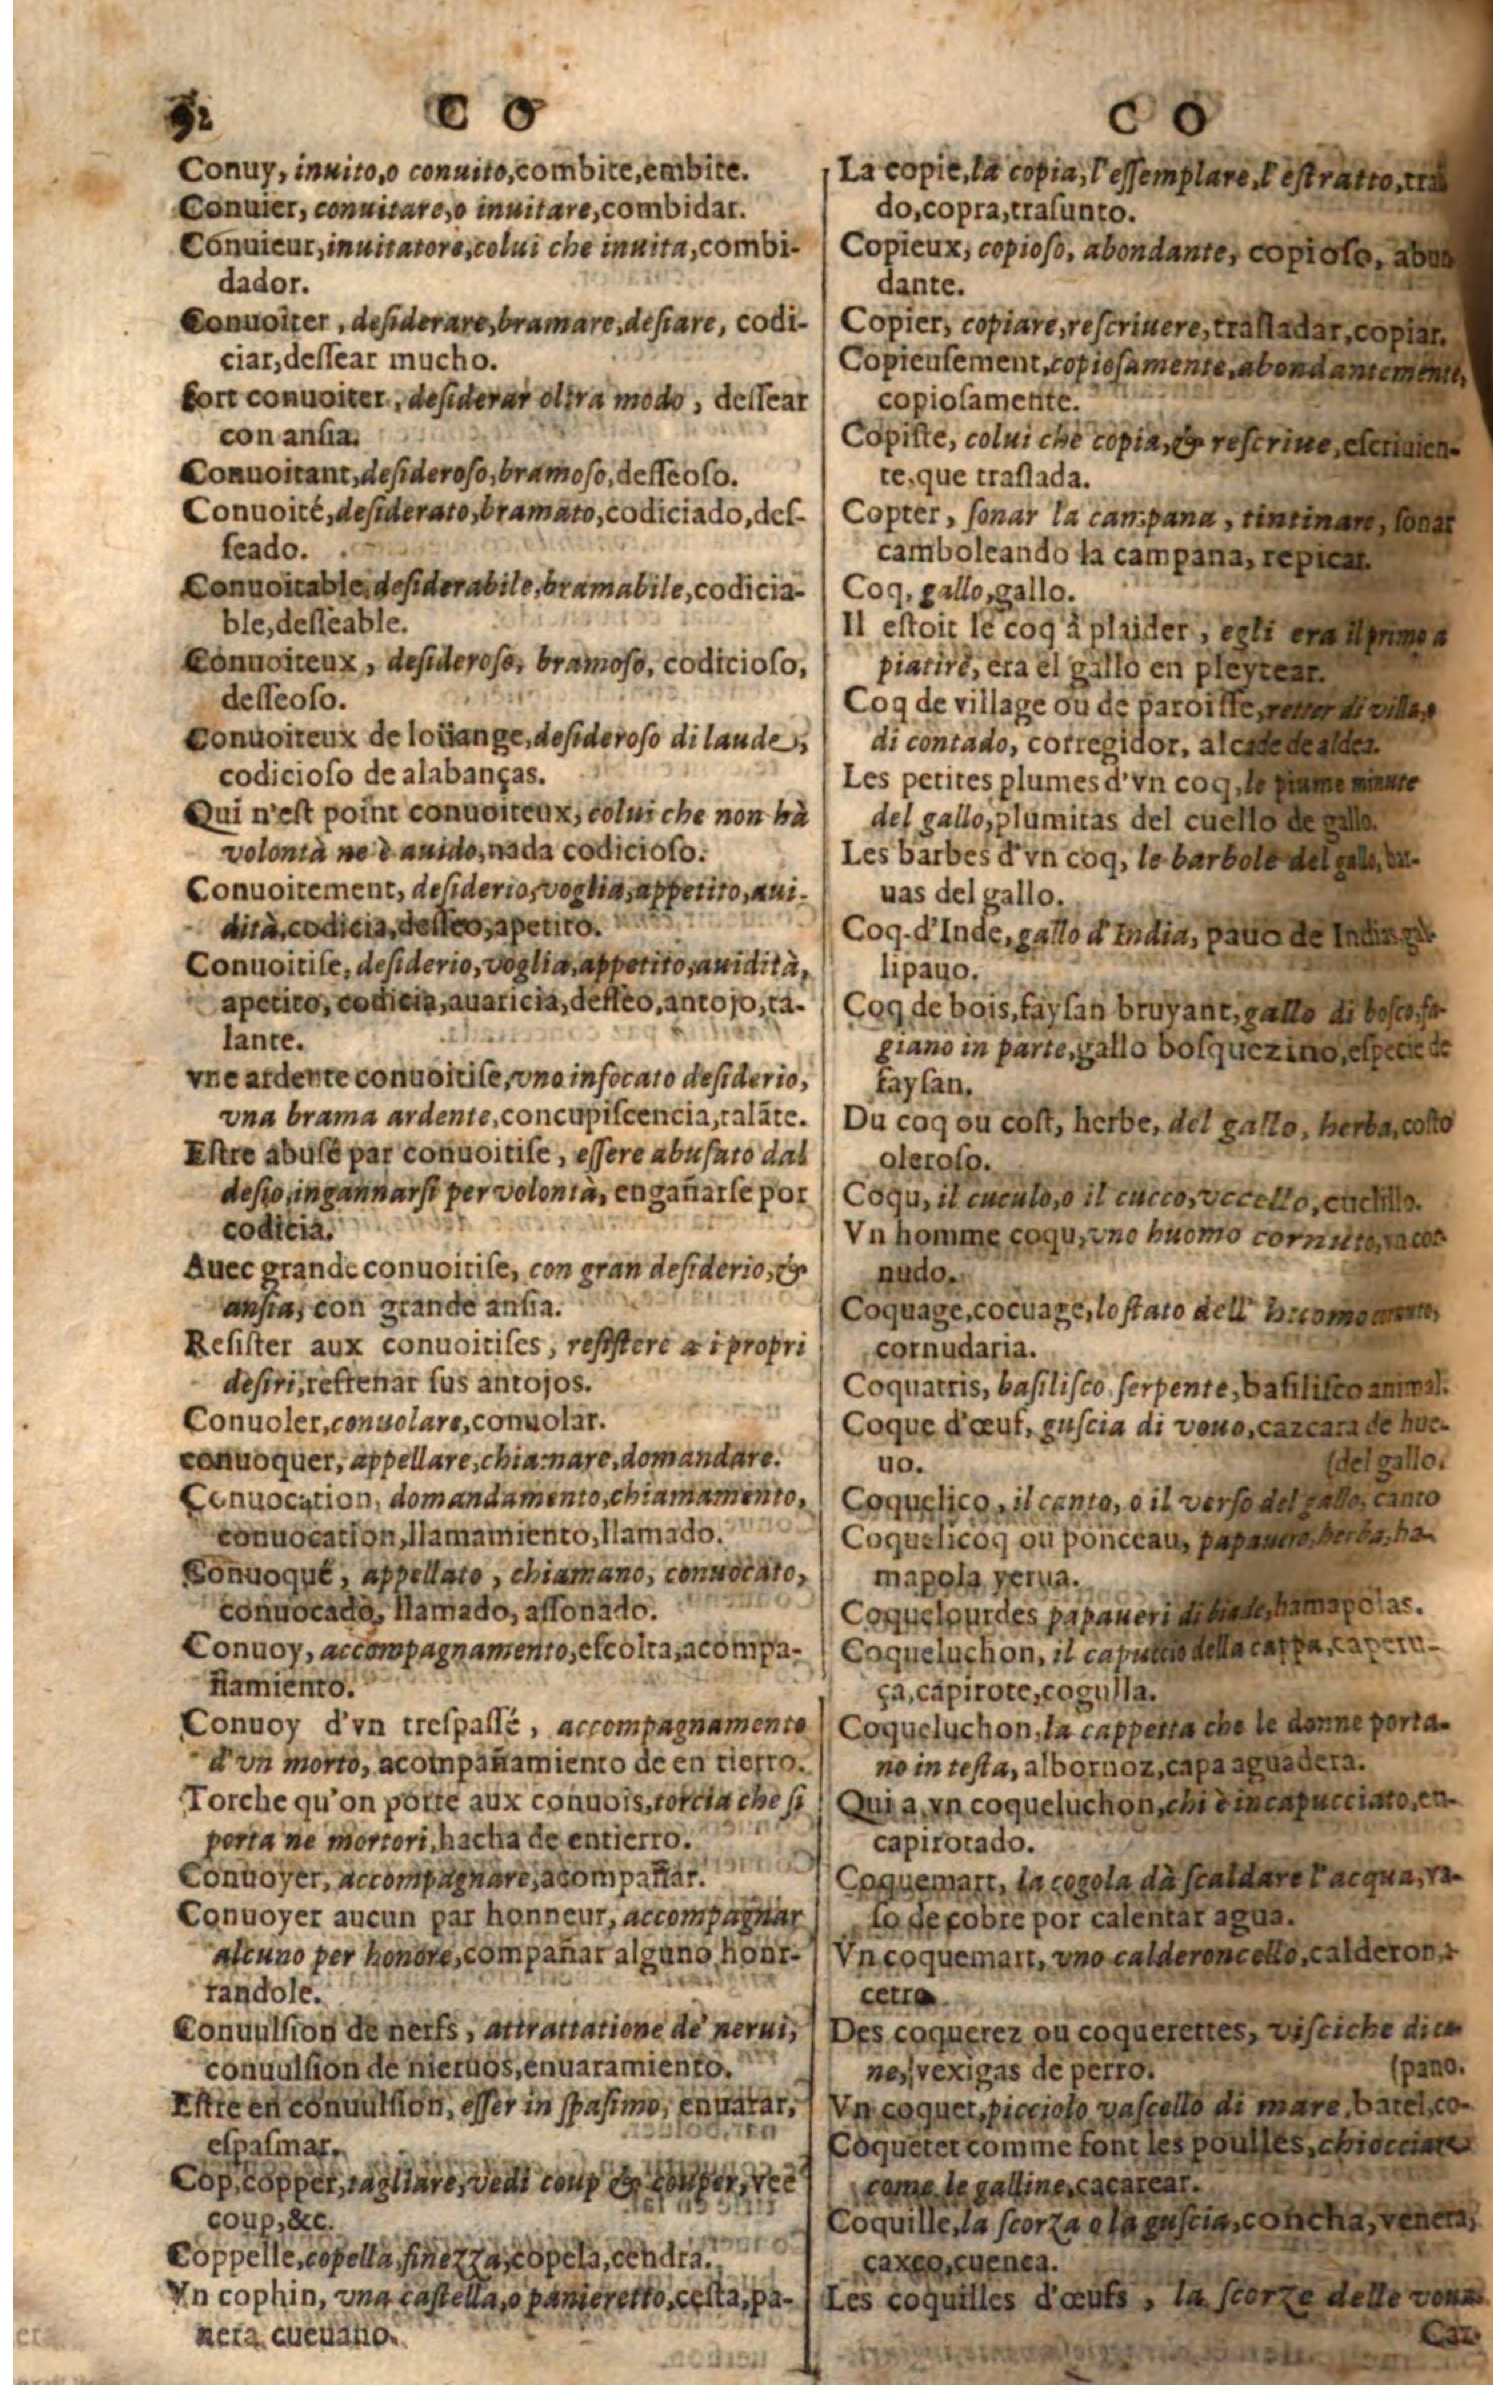 92 C O
Conuy, inuito,o conuito,combite,embite.
Conuier, conuitare,o inuitare,combidar.
Conuieur,inuitatore,colui che inuita,combi-
dador.
Conuoiter, desiderare,bramare,desiare, codi-
ciar,dessear mucho.
fort conuoiter, desiderar oltra modo, dessear
con ansia.
Conuoitant,desideroso,bramoso,desseoso.
Conuoité,desiderato,bramato,codiciado,des-
seado.
Conuoitable,desiderabile,bramabile,codicia-
ble,desseable.
Conuoiteux, desideroso, bramoso, codicioso,
desseoso.
Conuoiteux de loüange,desideroso di laude,
codicioso de alabanças.
Qui n'est point conuoiteux, colui che non hà
volontà ne è auido,nada codicioso.
Conuoitement, desiderio,voglia,appetito,aui-
dità,codicia,desseo,apetito.
Conuoitise, desiderio, voglia,appetito,auidità,
apetito, codicia,auaricia,desseo,antojo,ta-
lante.
vne ardente conuoitise,vno infocato desiderio,
vna brama ardente,concupiscencia,talãte.
Estre abusé par conuoitise, essere abusato dal
desio,ingannarsi per volontà, engañarse por
codicia.
Auec grande conuoitise, con gran desiderio,&
ansia, con grande ansia.
Resister aux conuoitises, resistere a i propri
desiri,refrenar sus antojos.
Conuoler,conuolare,conuolar.
conuoquer, appellare,chiamare,domandare.
Conuocation, domandamento,chiamamento,
conuocation,llamamiento,llamado.
Conuoqué, appellato, chiamano, conuocato,
conuocado, llamado, assonado.
Conuoy, accompagnamento,escolta,acompa-
ñamiento.
Conuoy d'vn trespassé, accompagnamento
d'vn morto, acompañamiento de en tierro.
Torche qu'on porte aux conuois,torcia che si
porta ne mortori,hacha de entierro.
Conuoyer, accompagnare,acompañar.
Conuoyer aucun par honneur, accompagnar
alcuno per honore,compañar alguno honr-
randole.
Conuulsion de nerfs, attrattatione de' nerui,
conuulsion de nieruos,enuaramiento.
Estre en conuulsion, esser in spasimo, enuarar,
espasmar.
Cop,copper,tagliare,vedi coup & couper,vee
coup,&c.
Coppelle,copella,finezza,copela,cendra.
Vn cophin, vna castella,o panieretto,cesta,pa-
nera cueuano.
C O
La copie,la copia,l'essemplare,l'estratto,
do,copra,trasunto.
Copieux, copioso, abondante, copioso, abun
dante.
Copier, copiare,rescriuere,trasladar,copiar.
Copieusement,copiosamente,abondantemente,
copiosamente.
Copiste, colui che copia,& rescriue,escriuien-
te,que traslada.
Copter, sonar la campana, tintinare, sonar
camboleando la campana, repicar.
Coq, gallo,gallo.
Il estoit le coq à plaider, egli era il primo a
piatire, era el gallo en pleytear.
Coq de village ou de paroisse, di villa,o
di contado, corregidor, alcade de aldea.
Les petites plumes d'vn coq,le piume minute
del gallo,plumitas del cuello de gallo.
Les barbes d'vn coq, le barbole del gallo, bar-
uas del gallo.
Coq-d'Inde,gallo d'India, pauo de Indias gal-
lipauo.
Coq de bois,faysan bruyant,gallo di bosco,fa-
giano in parte,gallo bosquezino,especie de
faysan.
Du coq ou cost, herbe, del gallo, herba,costo
oleroso.
Coqu, il cuculo,o il cucco,vccello,cuclillo.
Vn homme coqu,vno huomo cornuto, cor-
nudo.
Coquage,cocuage,lo stato dell' huomo
cornudaria.
Coquatris, basilisco serpente,basilisco animal.
Coque d'œuf, guscia di vouo,cazcara de hue-
uo. (del gallo.
Coquelico, il canto, o il verso del gallo, canto
Coquelicoq ou ponceau, papauero,herba,ha-
mapola yerua.
Coquelourdes papaueri di biade,hamapolas.
Coqueluchon, il capuccio della cappa,caperu-
ça,capirote,cogulla.
Coqueluchon,la cappetta che le donne porta-
no in testa, albornoz,capa aguadera.
Qui a vn coqueluchon,chi è incapucciato,en-
capirotado.
Coquemart, la cogola dà scaldare l'acqua,va-
so de cobre por calentar agua.
Vn coquemart, vno calderoncello,calderon,
cetro.
Des coquerez ou coquerettes, visciche di ca-
ne,vexigas de perro. (pano.
Vn coquet,picciolo vascello di mare,batel,co-
Coqueter comme font les poulles,chiocciare
come le galline,cacarear.
Coquille,la scorza o la guscia,concha,venera,
caxco,cuenca.
Les coquilles d'œufs, la scorze delle voua
Caz-